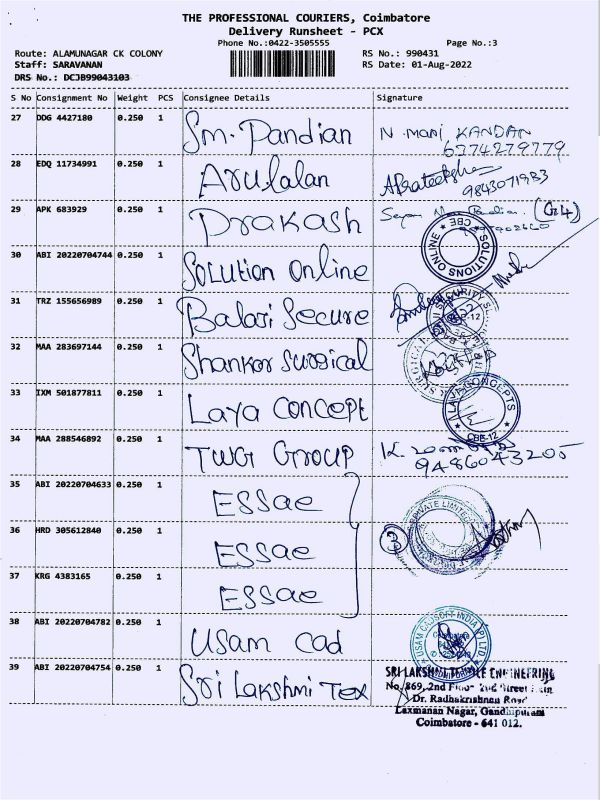 THE PROFESSIONAL COURIERS, Coimbatore
Delivery Runsheet - PCX
Phone No.:0422-3505555
Page No.:3
Route: ALAMUNAGAR CK COLONY
Staff: SARAVANAN
DRS No.: DCJB99043103
RS No.: 990431
RS Date: 01-Aug-2022
S No Consignment No Weight PCS Consignee Details Signature
27 DDG 4427180 0.250 1 Sm. Pandian N. Mani KANDAN
6374279779
28 EDQ 11734991 0.250 1 Arulalan
9843071983
29 APK 683929 0.250 1 Prakash
30 ABI 20220704744 0.250 1 Solution Online SOLUTIONS ONLINE CBE
31 TRZ 155656989 0.250 1 Balaji Secure
32 MAA 283697144 0.250 1 Shankar Surgical
33 IXM 501877811 0.250 1 Laya Concept LAYA CONCEPTS CBE-12
34 MAA 288546892 0.250 1 TWG Group
9486043205
35 ABI 20220704633 0.250 1 ESSae PRIVATE LIMITED
36 HRD 305612840 0.250 1 ESSae 3
37 KRG 4383165 0.250 1 ESSae
38 ABI 20220704782 0.250 1 Usam Cad USAM CADSOFT INDIA (P) LTD
39 ABI 20220704754 0.250 1 Sri Lakshmi Tex SRI LAKSHMI TEXTILE ENGINEERING
No. 869, 2nd Floor 2nd Street
Dr. Radhakrishnan Road
Laxmanan Nagar, Gandhipuram
Coimbatore - 641 012.